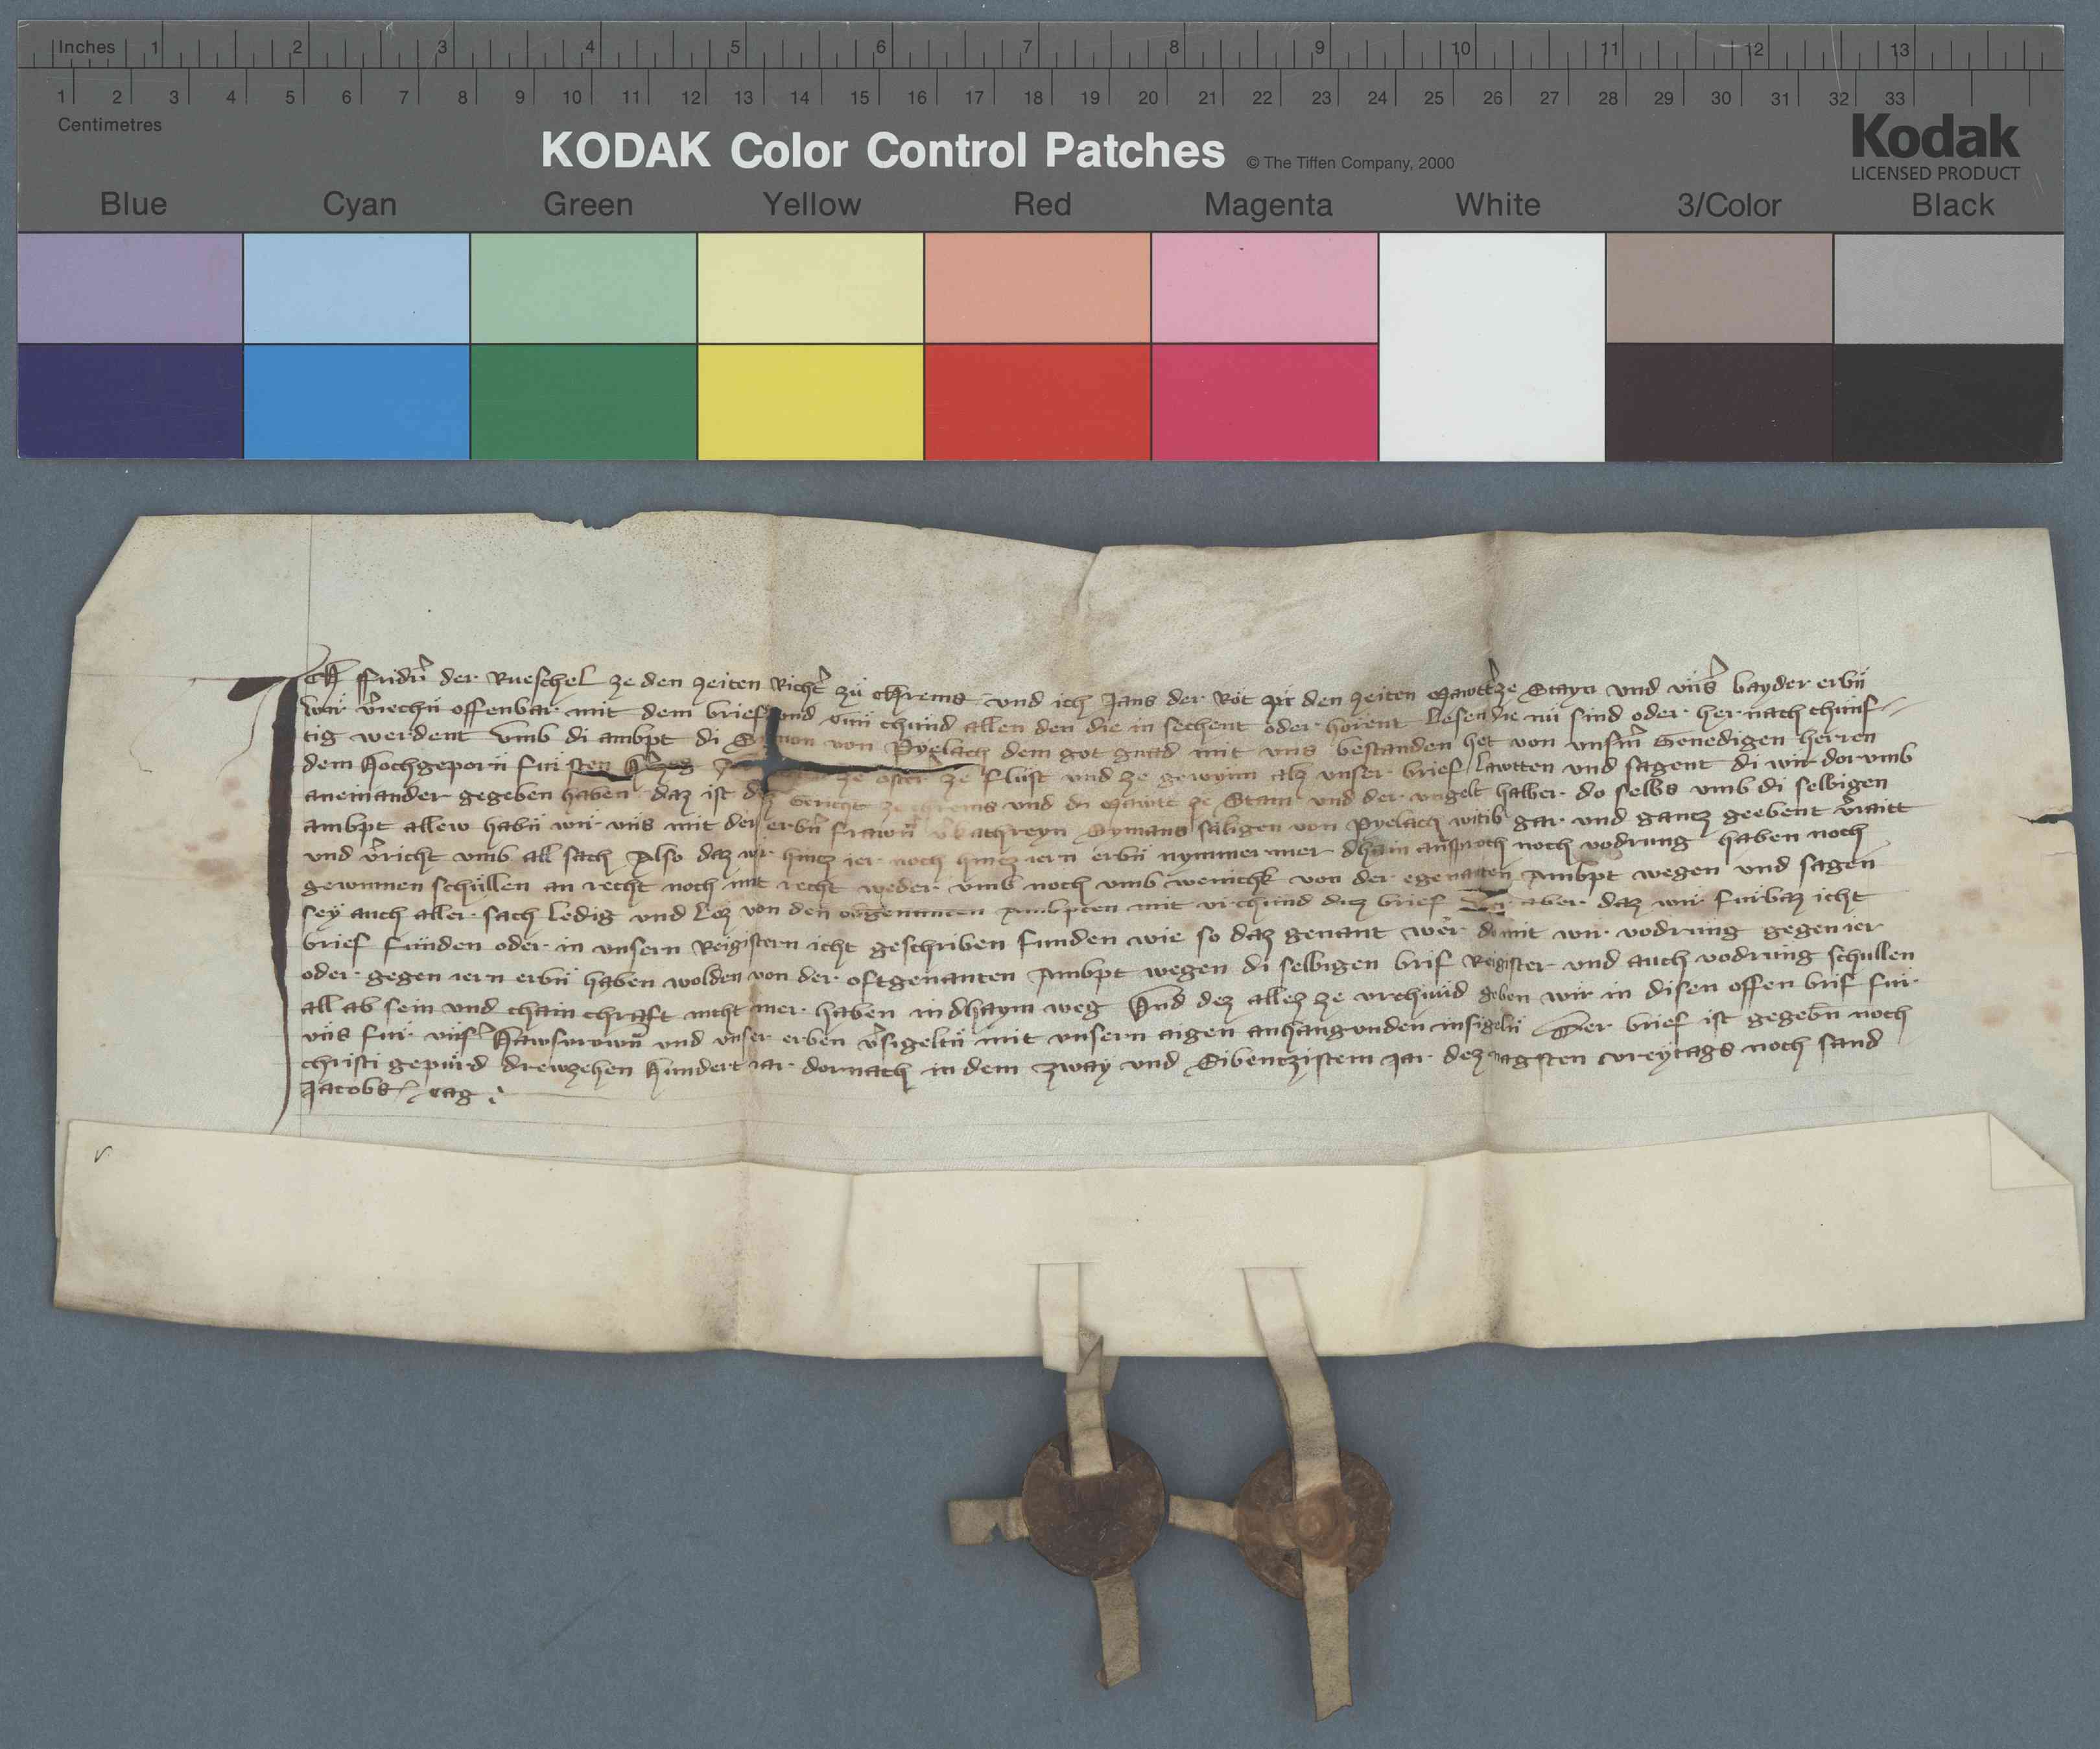 Inches 1 2 3 4 5 6 7 8 9 10 11 12 13
1 2 3 4 5 6 7 8 9 10 11 12 13 14 15 16 17 18 19 20 21 22 23 24 25 26 27 28 29 30 31 32 33
Centimetres
KODAK Color Control Patches © The Tiffen Company, 2000
Kodak
LICENSED PRODUCT
Blue Cyan Green Yellow Red Magenta White 3/Color Black
Ich der Rueschel ze den zeiten Richt zu Chrems und ich Jans der Röt ze den zeiten ze Stayn und bayder erbn
wir offenbar mit dem brief und chund allen den die in sechent oder hörent lesen die nu sind oder her nach chunf
tig werdent umb di ambpt di von Pyelach dem got gnad mit uns bestanden het von Genedigen herren
dem hochgeporn fursten ze flust und ze gewynn alz unser brief lawtten und sagent di wir dorumb
aneinander gegeben haben daz ist Gericht ze Chrems und di Mawtt ze Stain und der ungelt halber do selbs umb di selbigen
ambpt allew habn wir uns mit der erbn frawn Kathreyn Symans säligen von Pyelach witib gar und gancz geebent
und umb all sach Also daz wir hincz ier noch hincz iern erbn nymmer mer dhain ansproch noch vodrung haben noch
gewinnen schullen an recht noch mit recht weder umb noch umb wenichk von der egenanten Ambpt wegen und sagen
sey auch aller sach ledig und loz von den obgenanten Ambpten mit urchund dicz brief aber daz wir furbaz icht
brief funden oder in unsern Registern icht geschriben funden wie so daz genant wer domit wir vodrung gegen ier
oder gegen iern erbn haben wolden von der oftgenanten Ambpt wegen di selbigen brif Register und auch vodrung schullen
all ab sein und chain chraft nicht mer haben in dhaym weg Und dez allez ze urchund geben wir in disen offen brif fur
uns fur und unser erben mit unsern aigen anhangunden insigeln Der brief ist gegebn noch
christi gepurd drewzehen hundert iar dornach in dem zway und Sibenczistem Jar dez nagsten vreytags noch sand
Jacobs tag